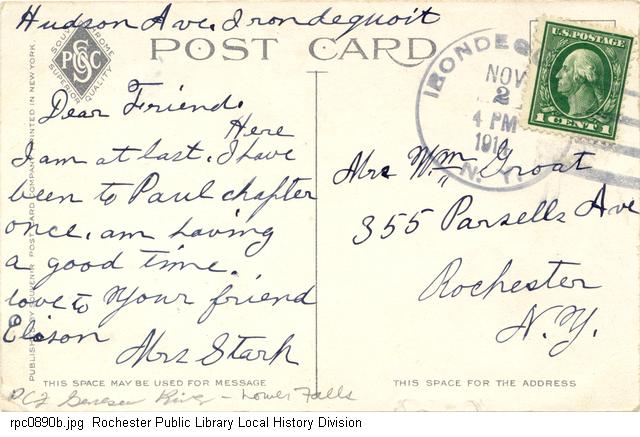 Hudson Ave, Irondequoit
SOUVENIR CHROME
PCSC
SUPERIOR QUALITY
POST CARD
IRONDEQUOIT
NOV
2
4 PM
1914
N. Y.
U.S. POSTAGE
1 CENT 1
Dear Friend,
Here
I am at last, I have
been to Paul chapter
once, am having
a good time.
love to Your friend
Elison
Mrs Stark
Mrs Wm Groat
355 Parsells Ave
Rochester
N.Y.
PUBLISHED BY SOUVENIR POST CARD COMPANY. PRINTED IN NEW YORK.
THIS SPACE MAY BE USED FOR MESSAGE
THIS SPACE FOR THE ADDRESS
Genesee River - Lower Falls
rpc0890b.jpg Rochester Public Library Local History Division